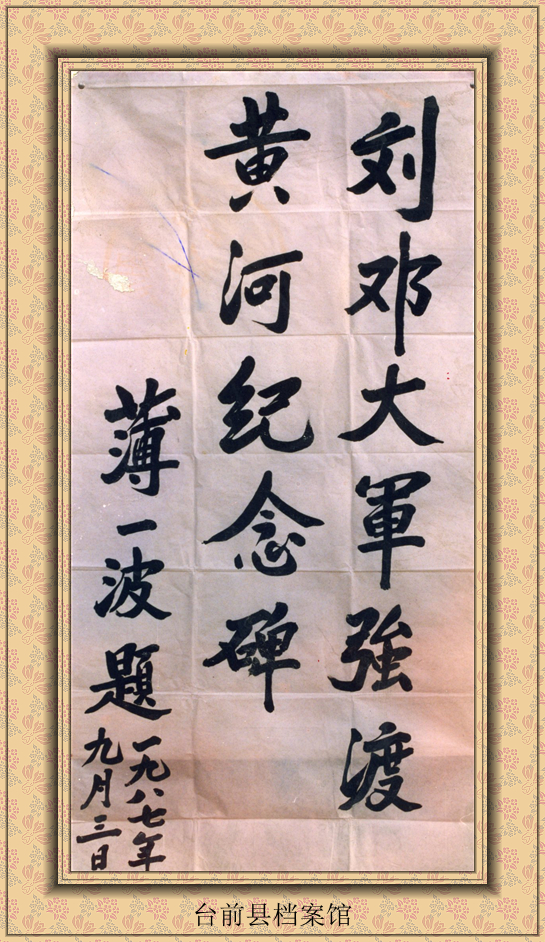 刘邓大軍強渡
黄河纪念碑
薄一波題
一九八七年
九月三日
台前县档案馆